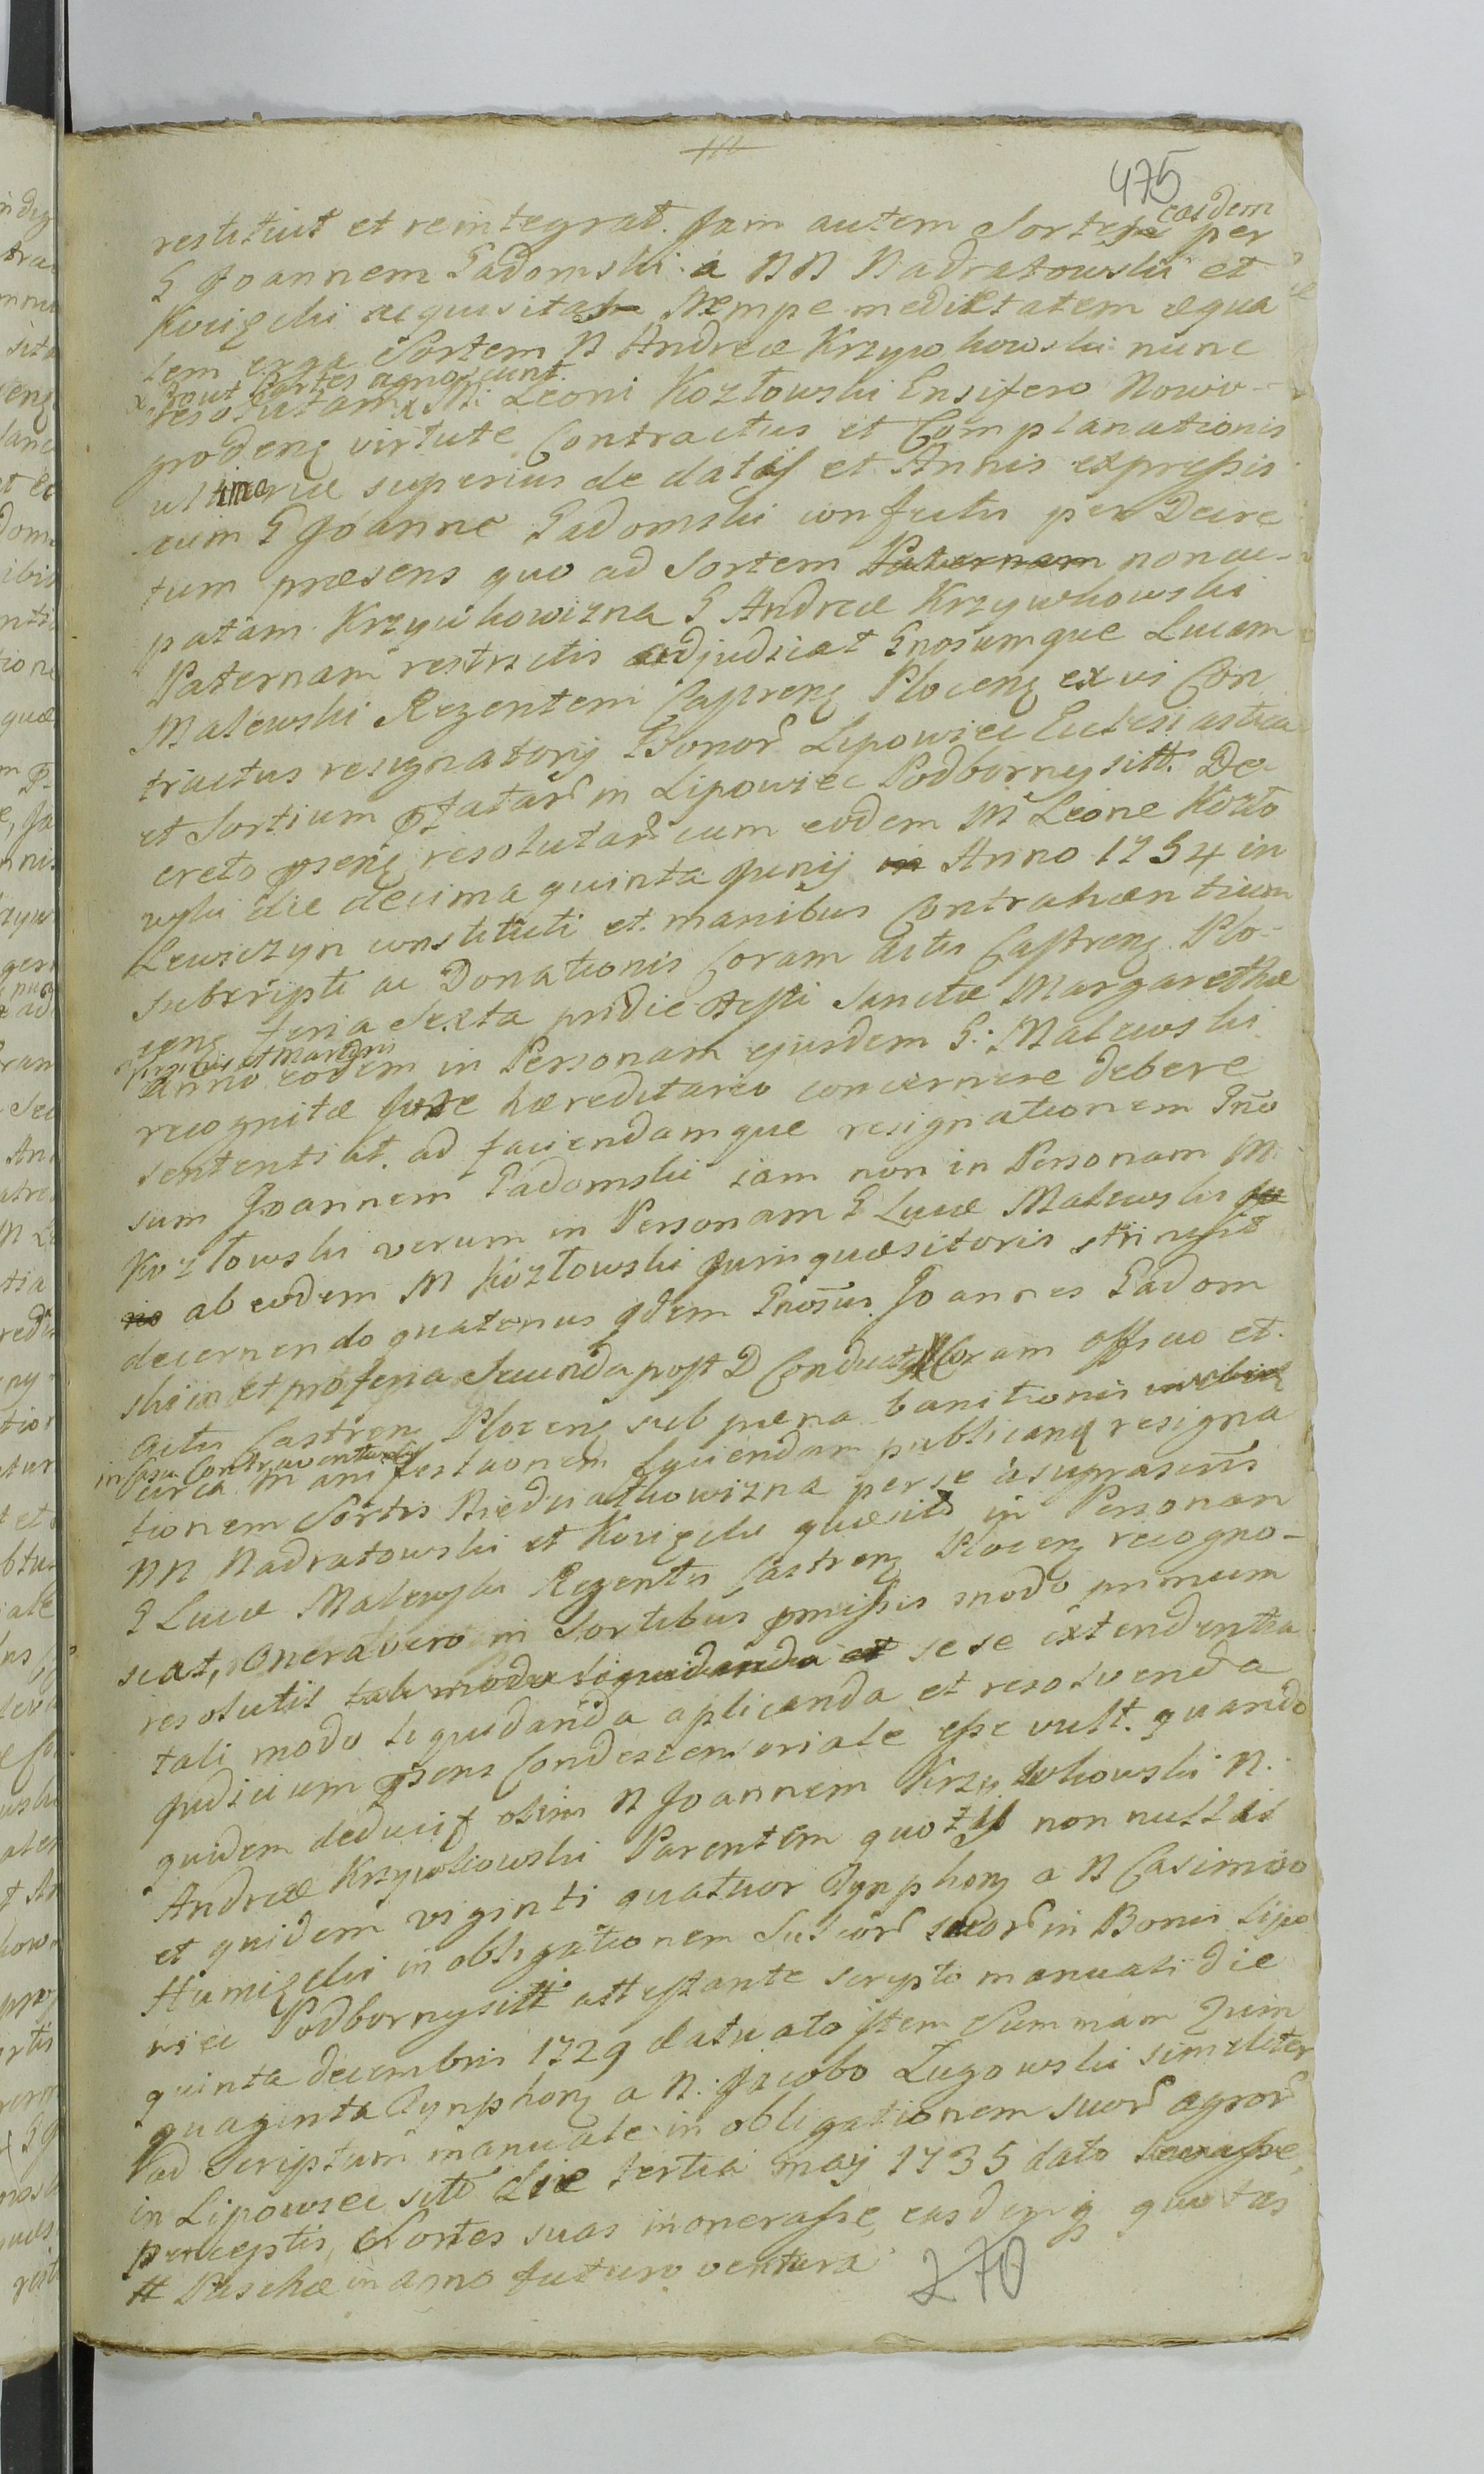 475
restituit et reintegrat. Jam autem Sortes easdem per
G Joannem Gadomski a NN Nadratowski et
Kucięcki acquisitas Nempe medietatem æqua
lem erga Sortem N Andreæ Krzywkowski nunc
x Prout Partes agnoscunt.
resolutam x M Leoni Kozłowski Ensifero Nowo-
grodenς virtute Contractus et Complanationis
ultimæ superius de datis et Annis expressis
cum G Joanne Gadomski confectis per Decre
tum præsens quo ad Sortem Paternam noncu-
patam Krzywkowizna G Andreæ Krzywkowski
Paternam restrictis adjudicat Gnosumque Lucam
Malewski Regentem Castrenς Plocenς ex vi Con
tractus resignatorij Bonor Lipowiec Ecclesiastica
et Sortium ptatar in Lipowiec Podborny sitt. De
creto psenς resolutar cum eodem M Leone Kozło
wski die decima quinta Junij in Anno 1754 in
Lewiczyn constituti et manibus Contrahentium
subscripti ac Donationis Coram Actis Castrenς Plo-
cenς feria Sexta pridie Festi Sanctæ Margarethæ
Virginis et Martyris
Anno eodem in Personam ejusdem G: Malewski
recognitæ Jure hæreditario concernere debere
sententiat. ad faciendamque resignationem Gno
sum Joannem Gadomski iam non in Personam M
Kozłowski verum in Personam G Lucæ Malewski Ju
ris ab eodem M Kozłowski Juris quæsitoris stringit
decernendo quatenus idem Gnosus Joannes Gadom
ski in et pro feria Secunda post D Conductus Coram officio et
Actis Castrenς Plocenς sub pæna banitionis
in casu Contraventionis
circa Manifestationem faciendam publicamς resigna
tionem Sortis Niedziałkowizna per se a suprascris
NN Nadratowski et Kucięcki quæsitæ in Personam
G Lucæ Malewski Regentis Castrenς Plocenς recogno-
scat, Onera vero in Sortibus pmissis modo primum
resolutis tali modo liquidanda et sese extendentia
tali modo liquidanda aplicanda et resolvenda
Judicium psens Condescensoriale esse vult. quando
quidem deducit olim N Joannem Krzywkowski N.
Andreæ Krzywkowski Parentem quotas non nullas
et quidem viginti quatuor Tynphonς a N Casimiro
Humięcki in obligationem Sulcor suor in Bonis Lipo
wiec Podborny sitt attestante scripto manuali die
quinta decembris 1729 datuato Item Summam Quin
quaginta Tynphonς a N: Jacobo Zugowski similiter
ad Scriptum manuale in obligationem suor agror
in Lipowiec sitt die tertia maij 1735 dato levasse
perceptis, Sortes suas inonerasse easdemq quotas
# Paschæ in anno futuro ventura
270